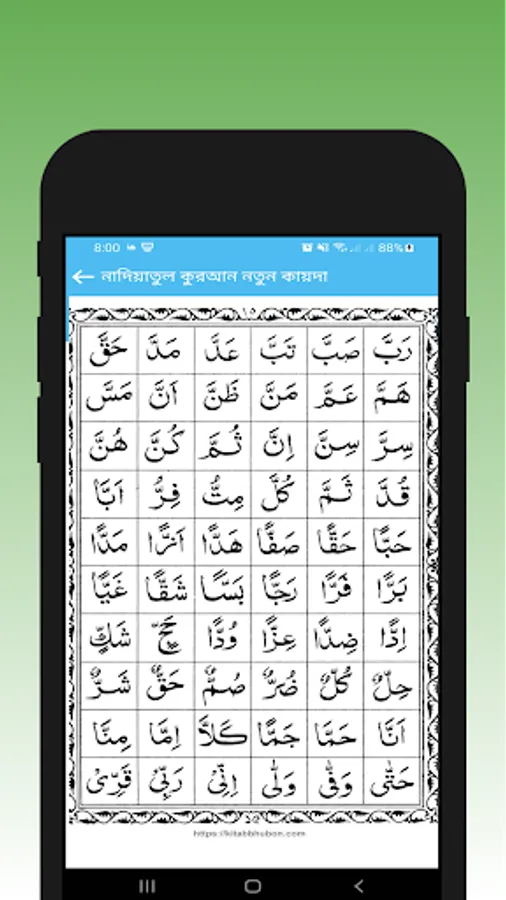 8:00 88%
নাদিয়াতুল কুরআন নতুন কায়দা
رَبَّ صَبَّ تَبَّ عَدَّ مَدَّ حَقَّ
هَمَّ عَمَّ مَنَّ ظَنَّ اَنَّ مَسَّ
سِرَّ سِنَّ اِنَّ ثُمَّ كُنَّ هُنَّ
قُدَّ ثَمَّ كُلَّ مِتُّ فِرُّ اَبًّا
حَبًّا حَقًّا صَفًّا هَدًّا اَزًّا مَدًّا
بَرًّا فَرًّا رَجًّا بَسًّا شَقًّا غَيًّا
اِدًّا ضِدًّا عِزًّا وُدًّا حَجٍّ شَكٍّ
حِلٌّ كُلٌّ ضُرٌّ صُمٌّ حَقٌّ شَرٌّ
اَنَّا حَمَّا جَمًّا كَلَّا اِمَّا مِنَّا
حَتّٰى وَفّٰى وَلّٰى اِنِّىْ رَبِّىْ قَرِّىْ
https://kitabbhubon.com